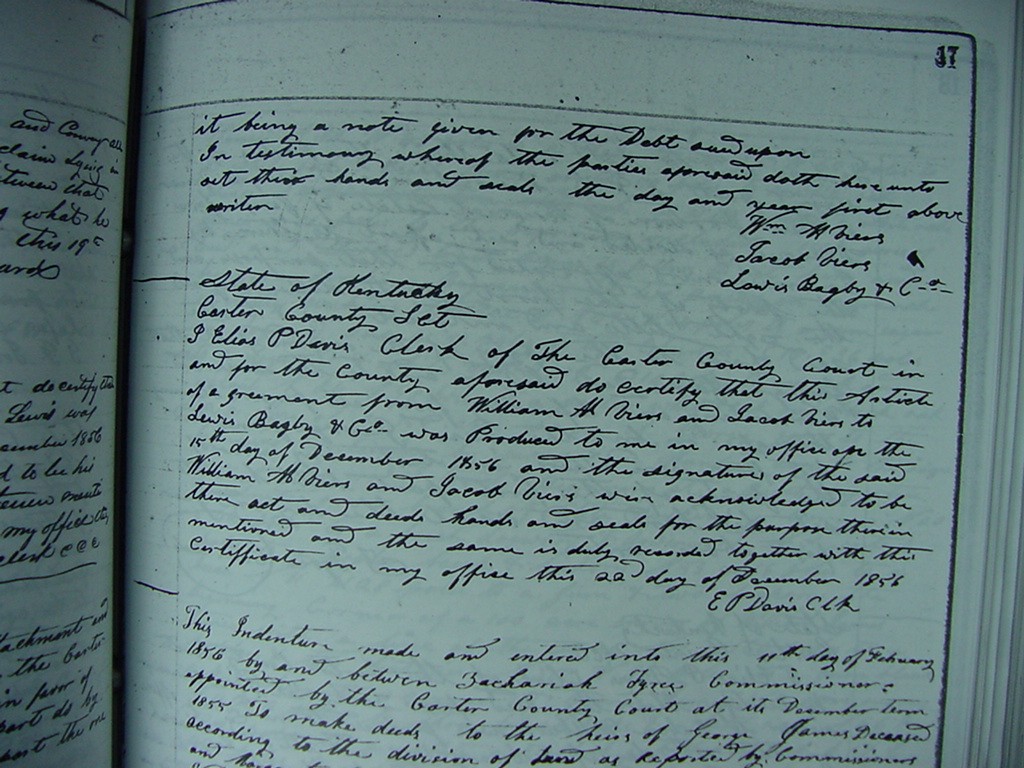 37
and Convey all
claim lying in
between that
what he
this 19th
it being a note given for the Debt and upon
In testimony whereof the parties aforesaid doth here unto
set their hands and seals the day and year first above
writen
Wm H Viers
Jacob Viers
Lewis Bagby & Co
State of Kentucky
Carter County Sct
I Elias P Davis Clerk of The Carter County Court in
and for the County aforesaid do certify that this Article
of agreement from William H Viers and Jacob Viers to
Lewis Bagby & Co was Produced to me in my office on the
15th day of December 1856 and the signature of the said
William H Viers and Jacob Viers was acknowledged to be
there act and deeds hands and seals for the purpose therein
mentioned and the same is duly recorded together with this
Certificate in my office this 22d day of December 1856
E P Davis Clk
do certify the
Lewis was
December 1856
d to be his
my office this
This Indenture made and entered into this 11th day of February
1856 by and between Zachariah Tyree Commissioner
appointed by the Carter County Court at its December term
1855 To make deeds to the heirs of George James Deceased
according to the division of Land as Reported by Commissioners
and
attachment and
the Carter
in favor of
part do by
part the one